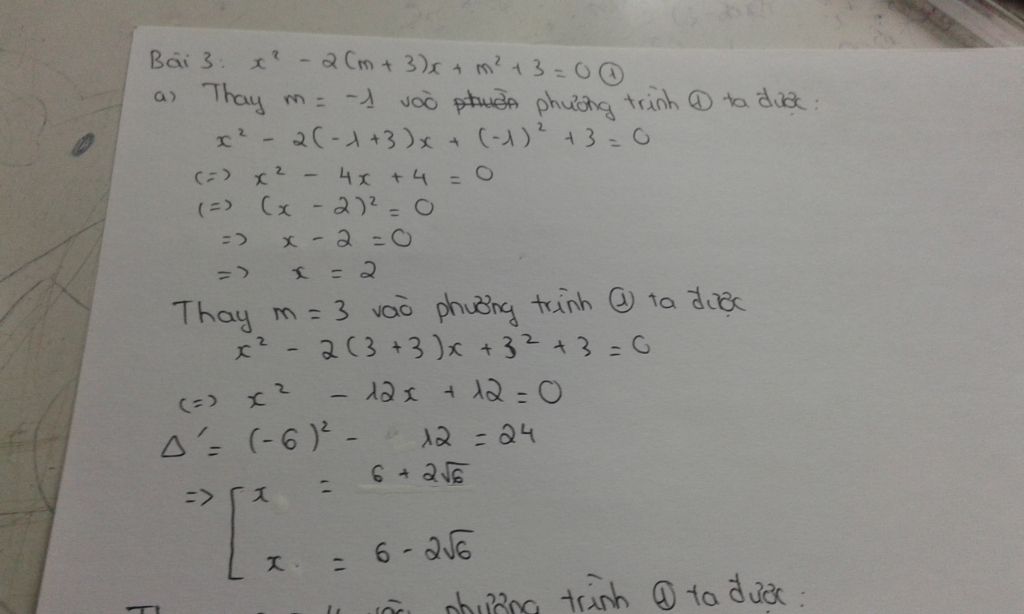 Bài 3: x² - 2(m + 3)x + m² + 3 = 0 ①
a) Thay m = -1 vào phương trình ① ta được:
x² - 2(-1+3)x + (-1)² + 3 = 0
(=) x² - 4x + 4 = 0
(=) (x - 2)² = 0
=> x - 2 = 0
=> x = 2
Thay m = 3 vào phương trình ① ta được
x² - 2(3+3)x + 3² + 3 = 0
(=) x² - 12x + 12 = 0
Δ' = (-6)² - 12 = 24
=> [ x = 6 + 2√6
x = 6 - 2√6
vào phương trình ① ta được: